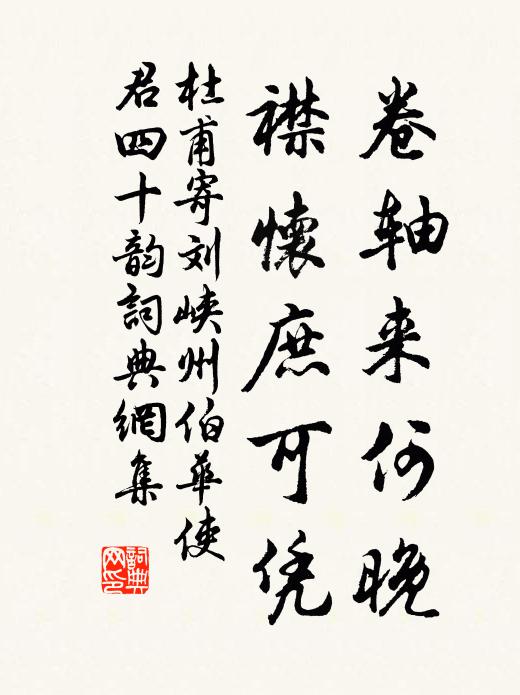 卷轴来何晚
襟懷庶可凭
杜甫寄刘峡州伯華使
君四十韵詞典網集
詞典
网印